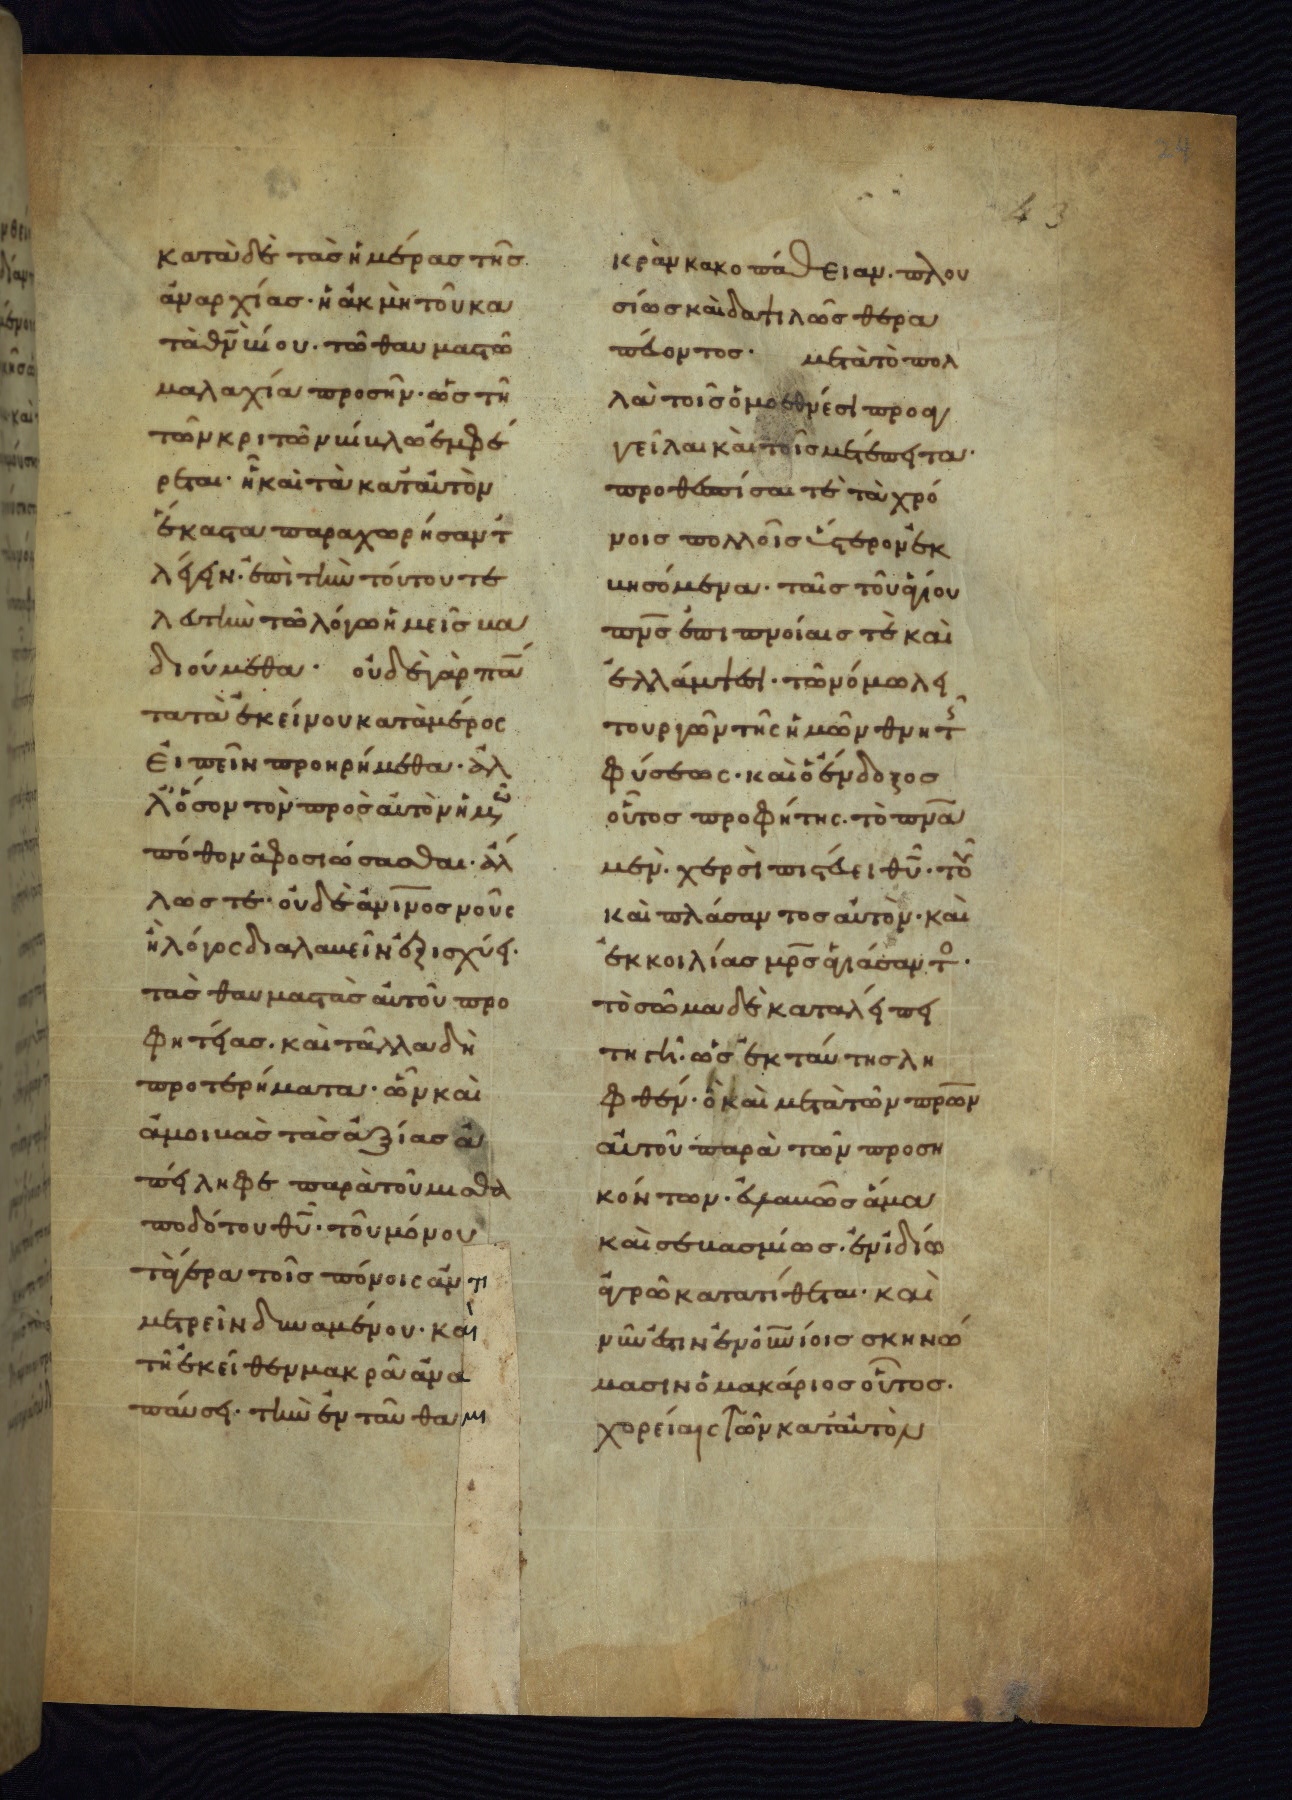 24
43
κατὰ δὲ τὰσ ἡμέρασ τῆσ
ἀναρχίασ· ἡ ἀκμὴ τοῦ κα
τὰ θῡ̀ βίου· τῶ θαυμαστῶ
μαλαχία προσῆν· ὡσ τῆ
τῶν κριτῶν βίβλω ἐμφέ
ρεται· ἧ καὶ τὰ κατ' αὐτὸν
ἕκαστα παραχωρήσαντ
λέγειν· ἐπὶ τὴν τούτου τε
λετὴν τῶ λόγω ἡμεῖσ βα
διούμεθα· οὐδὲ γὰρ πάν
τα τὰ ἐκείνου κατὰ μέρος
εἰπεῖν προηρήμεθα· ἀλ
λ' ὅσον τὸν πρὸσ αὐτὸν ἡμῶ
πόθον ἀφοσιώσασθαι· ἄλ
λωσ τε· οὐδὲ ἀνι̅νοσ νοῦς
ἢ λόγος διαλαβεῖν ἐξισχύει·
τὰσ θαυμαστὰσ αὐτοῦ προ
φητείασ· καὶ τἄλλα δὴ
προτερήματα· ὧν καὶ
ἀμοιβὰσ τὰσ ἀξίασ ἀ
πείληφε παρὰ τοῦ μισθα
ποδότου θῡ· τοῦ μόνου
τὰ γέρα τοῖσ πόνοις ἀντι
μετρεῖν δυναμένου· καὶ
τῆ ἐκεῖθεν μακρᾶ ἀνα
παύσει· τὴν ἐνταῦθα μι
κρὰν κακοπάθειαν· πλου
σίωσ καὶ δαψιλῶσ θερα
πεύοντοσ· μετὰ τὸ πολ
λὰ τοῖσ ὁμοεθνέσι προαγ
γεῖλαι καὶ τοῖσ μετέπειτα·
προθεσπίσαι τὲ τὰ χρό
νοισ πολλοῖσ ὕστερον ἐκ
βησόμενα· ταῖσ τοῦ ἁγίου
πν̅σ ἐπιπνοίαισ τὲ καὶ
ἐλλάμψεσι· τῶ νόμω λει
τουργῶν τῆς ἡμῶν θνητ
φύσεως· καὶ ὁ ἔνδοξοσ
οὗτοσ προφήτης· τὸ πν̅α
μὲν· χερσὶ πιστεύει θῡ· τοῦ
καὶ πλάσαντοσ αὐτὸν· καὶ
ἐκ κοιλίασ μρ̅σ ἁγιάσαντο·
τὸ σῶμα δὲ καταλείπει
τῆ γῆ· ὡσ ἐκ ταύτησ λη
φθέν· ὃ καὶ μετὰ τῶν πρ̅ων
αὐτοῦ παρὰ τῶν προση
κόντων· εὐλαβῶσ ἅμα
καὶ σεβασμίωσ· ἐν ἰδίω
ἀγρῶ κατατίθεται· καὶ
νῦν ἐστὶν ἐν οὐ̅νίοισ σκηνώ
μασιν ὁ μακάριοσ οὗτοσ·
χορείαις τῶν κατ' αὐτὸν